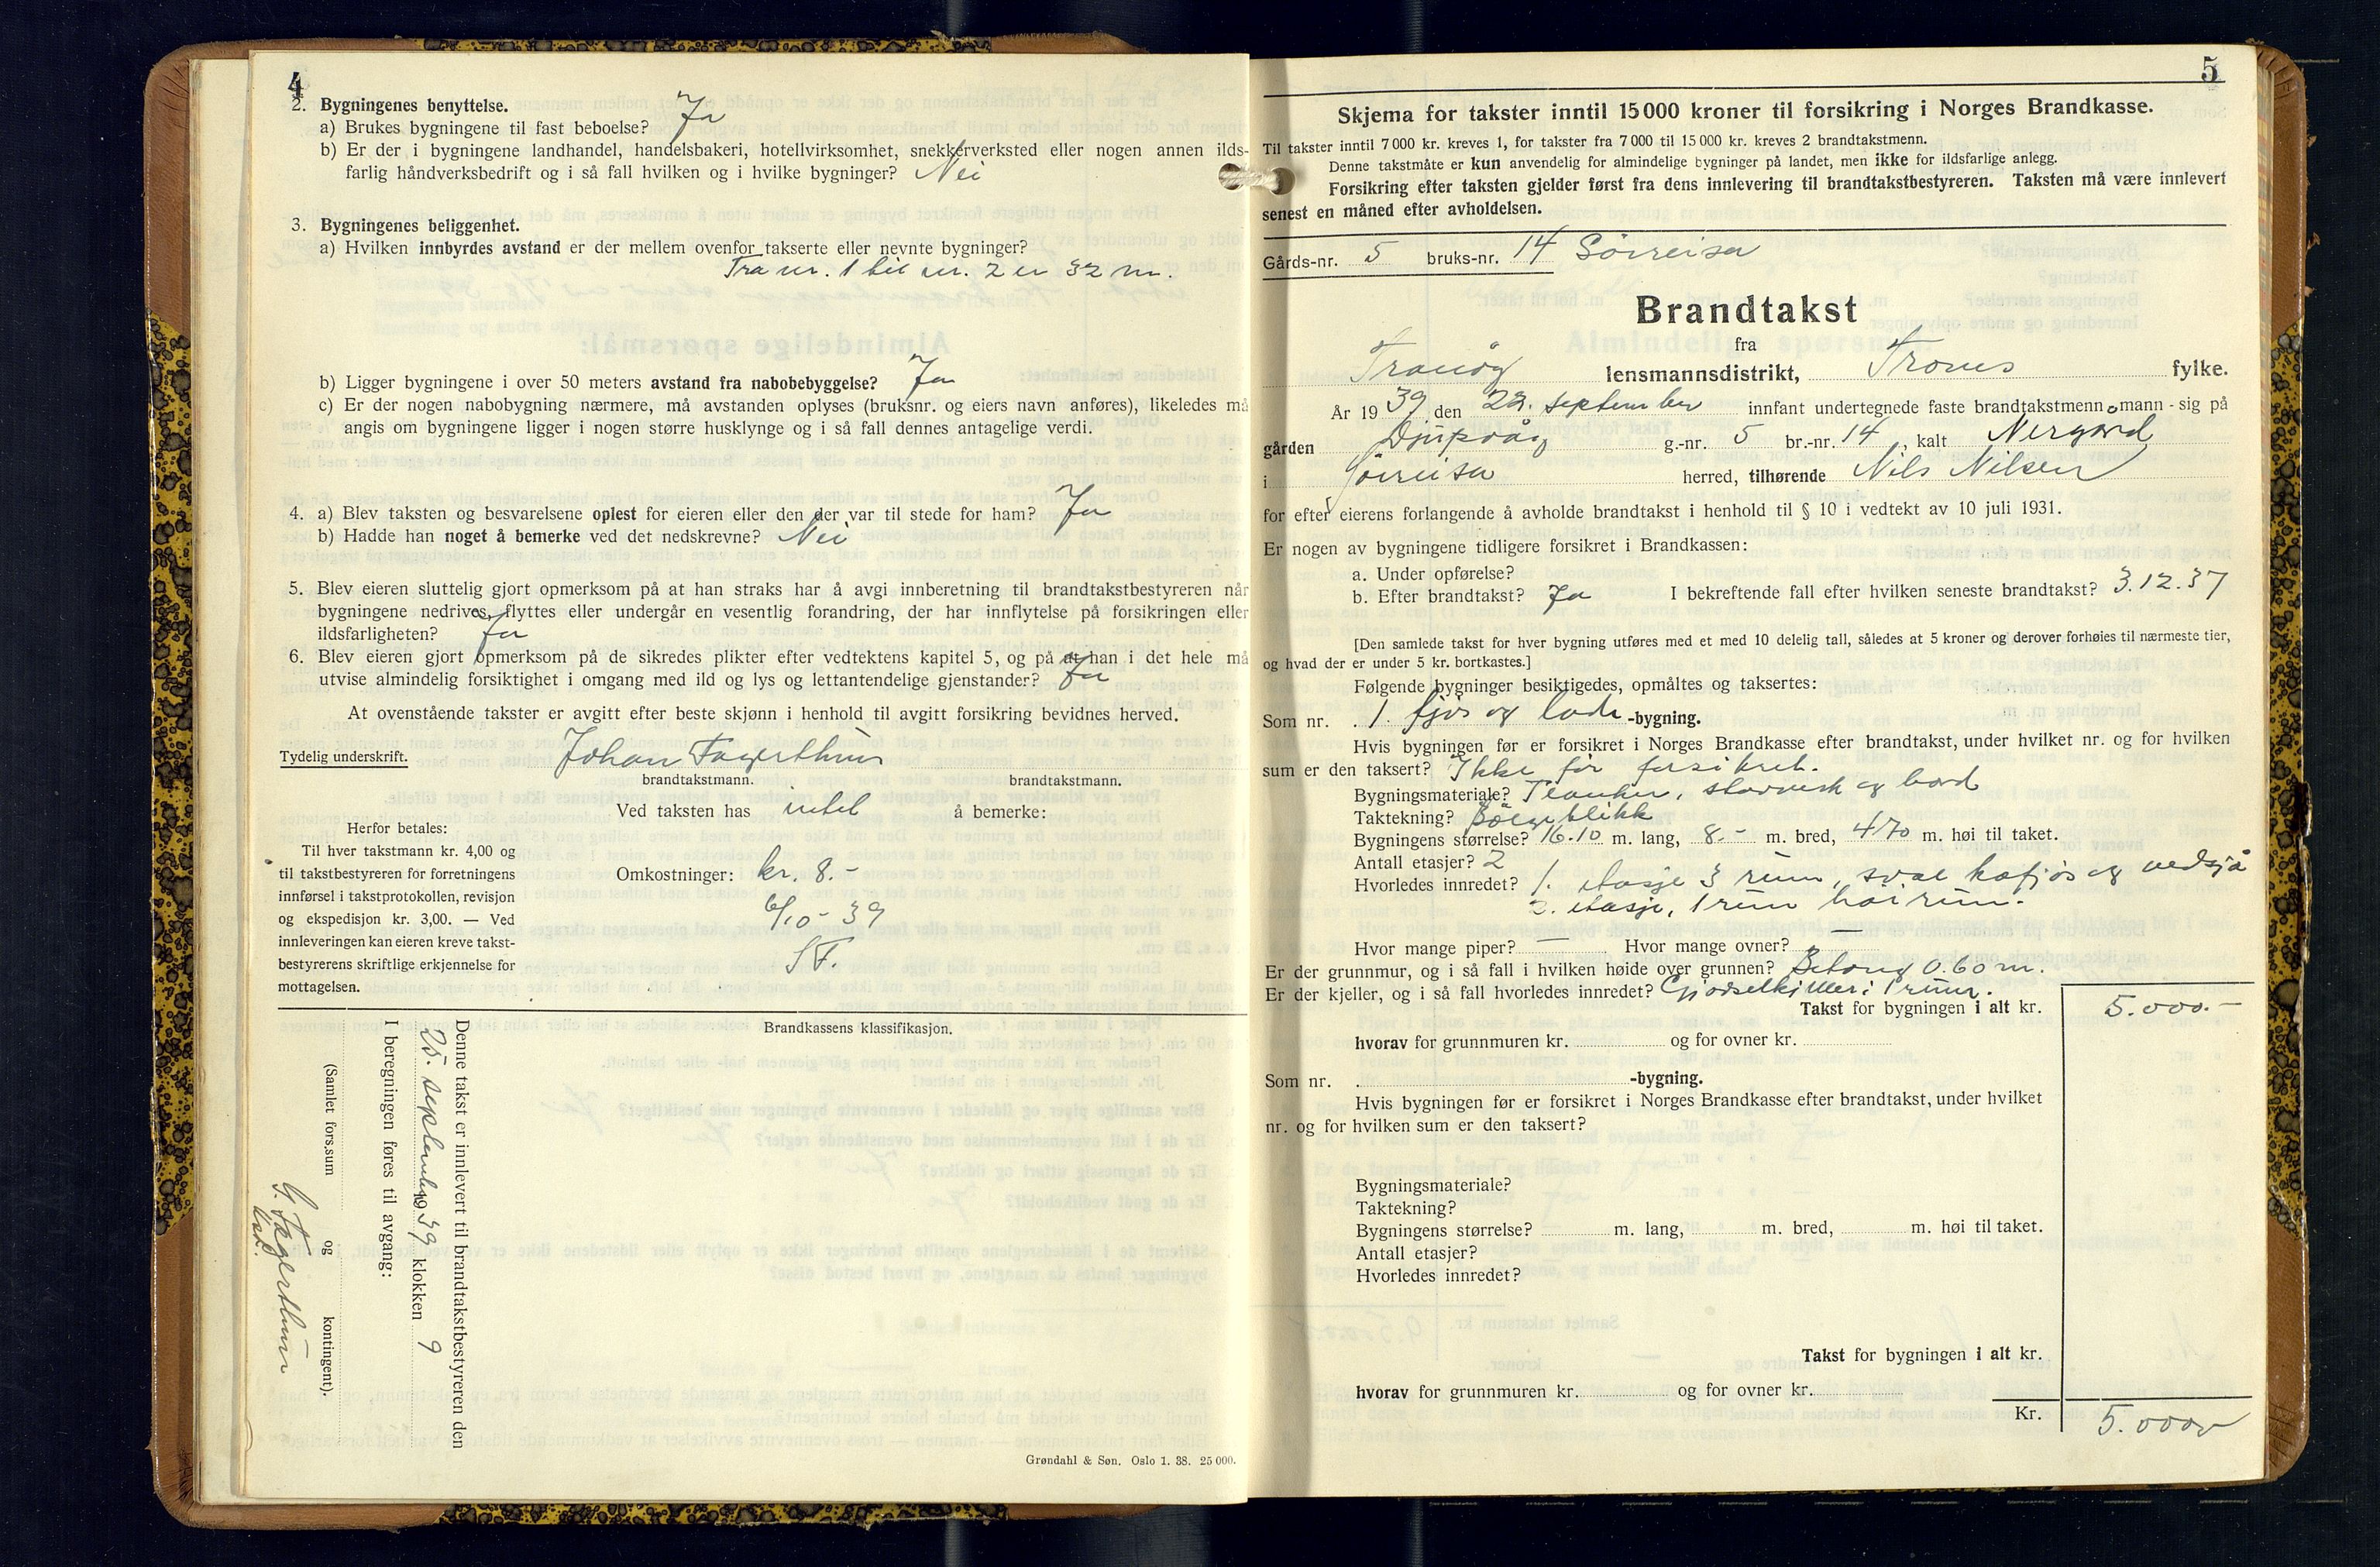 4
2. Bygningenes benyttelse.
a) Brukes bygningene til fast beboelse? Ja
b) Er der i bygningene landhandel, handelsbakeri, hotellvirksomhet, snekkerverksted eller nogen annen ilds-
farlig håndverksbedrift og i så fall hvilken og i hvilke bygninger? Nei
3. Bygningenes beliggenhet.
a) Hvilken innbyrdes avstand er der mellem ovenfor takserte eller nevnte bygninger?
Fra nr. 1 til nr. 2 er 32 m.
b) Ligger bygningene i over 50 meters avstand fra nabobebyggelse? Ja
c) Er der nogen nabobygning nærmere, må avstanden oplyses (bruksnr. og eiers navn anføres), likeledes må
angis om bygningene ligger i nogen større husklynge og i så fall dennes antagelige verdi.
4. a) Blev taksten og besvarelsene oplest for eieren eller den der var til stede for ham? Ja
b) Hadde han noget å bemerke ved det nedskrevne? Nei
5. Blev eieren sluttelig gjort opmerksom på at han straks har å avgi innberetning til brandtakstbestyreren når
bygningene nedrives, flyttes eller undergår en vesentlig forandring, der har innflytelse på forsikringen eller
ildsfarligheten? Ja
6. Blev eieren gjort opmerksom på de sikredes plikter efter vedtektens kapitel 5, og på at han i det hele må
utvise almindelig forsiktighet i omgang med ild og lys og lettantendelige gjenstander? Ja
At ovenstående takster er avgitt efter beste skjønn i henhold til avgitt forsikring bevidnes herved.
Tydelig underskrift. Johan Fagerthun
brandtakstmann. brandtakstmann.
Ved taksten has intet å bemerke:
Herfor betales:
Til hver takstmann kr. 4,00 og
til takstbestyreren for forretningens
innførsel i takstprotokollen, revisjon
og ekspedisjon kr. 3,00. — Ved
innleveringen kan eieren kreve takst-
bestyrerens skriftlige erkjennelse for
mottagelsen.
Omkostninger: kr. 8.-
6/10- 39
SF.
Brandkassens klassifikasjon.
Denne takst er innlevert til brandtakstbestyreren den
25. september 1939 klokken 9
I beregningen føres til avgang:
(Samlet fors.sum og kontingent).
G. Fagerthun
Grøndahl & Søn. Oslo 1. 38. 25 000.
5
Skjema for takster inntil 15 000 kroner til forsikring i Norges Brandkasse.
Til takster inntil 7 000 kr. kreves 1, for takster fra 7 000 til 15 000 kr. kreves 2 brandtakstmenn.
Denne takstmåte er kun anvendelig for almindelige bygninger på landet, men ikke for ildsfarlige anlegg.
Forsikring efter taksten gjelder først fra dens innlevering til brandtakstbestyreren. Taksten må være innlevert
senest en måned efter avholdelsen.
Gårds-nr. 5 bruks-nr. 14 Sørreisa
Brandtakst
fra
Tranøy lensmannsdistrikt, Troms fylke.
År 1939 den 22. september innfant undertegnede faste brandtakstmenn - mann - sig på
gården Djupvåg g.-nr. 5 br.-nr. 14, kalt Nergård
i Sørreisa herred, tilhørende Nils Nilsen
for efter eierens forlangende å avholde brandtakst i henhold til § 10 i vedtekt av 10 juli 1931.
Er nogen av bygningene tidligere forsikret i Brandkassen:
a. Under opførelse?
b. Efter brandtakst? Ja I bekreftende fall efter hvilken seneste brandtakst? 3.12.37
[Den samlede takst for hver bygning utføres med et med 10 delelig tall, således at 5 kroner og derover forhøies til nærmeste tier,
og hvad der er under 5 kr. bortkastes.]
Følgende bygninger besiktigedes, opmåltes og taksertes:
Som nr. 1. fjøs og lade -bygning.
Hvis bygningen før er forsikret i Norges Brandkasse efter brandtakst, under hvilket nr. og for hvilken
sum er den taksert? Ikke før forsikret.
Bygningsmateriale? Planker, stavverk og bord
Taktekning? Bølgeblikk
Bygningens størrelse? 16.10 m. lang, 8.- m. bred, 4.70 m. høi til taket.
Antall etasjer? 2
Hvorledes innredet? 1. etasje 3 rum, sval kofjøs og vedsjå
2. etasje, 1 rum høirum.
Hvor mange piper? — Hvor mange ovner? —
Er der grunnmur, og i så fall i hvilken høide over grunnen? Betong 0.60 m.
Er der kjeller, og i så fall hvorledes innredet? Gjødselkjeller i 1 rum.
Takst for bygningen i alt kr. 5.000.-
hvorav for grunnmuren kr. og for ovner kr.
Som nr. . -bygning.
Hvis bygningen før er forsikret i Norges Brandkasse efter brandtakst, under hvilket
nr. og for hvilken sum er den taksert?
Bygningsmateriale?
Taktekning?
Bygningens størrelse? m. lang, m. bred, m. høi til taket.
Antall etasjer?
Hvorledes innredet?
Takst for bygningen i alt kr.
hvorav for grunnmuren kr. og for ovner kr.
Kr. 5.000,-